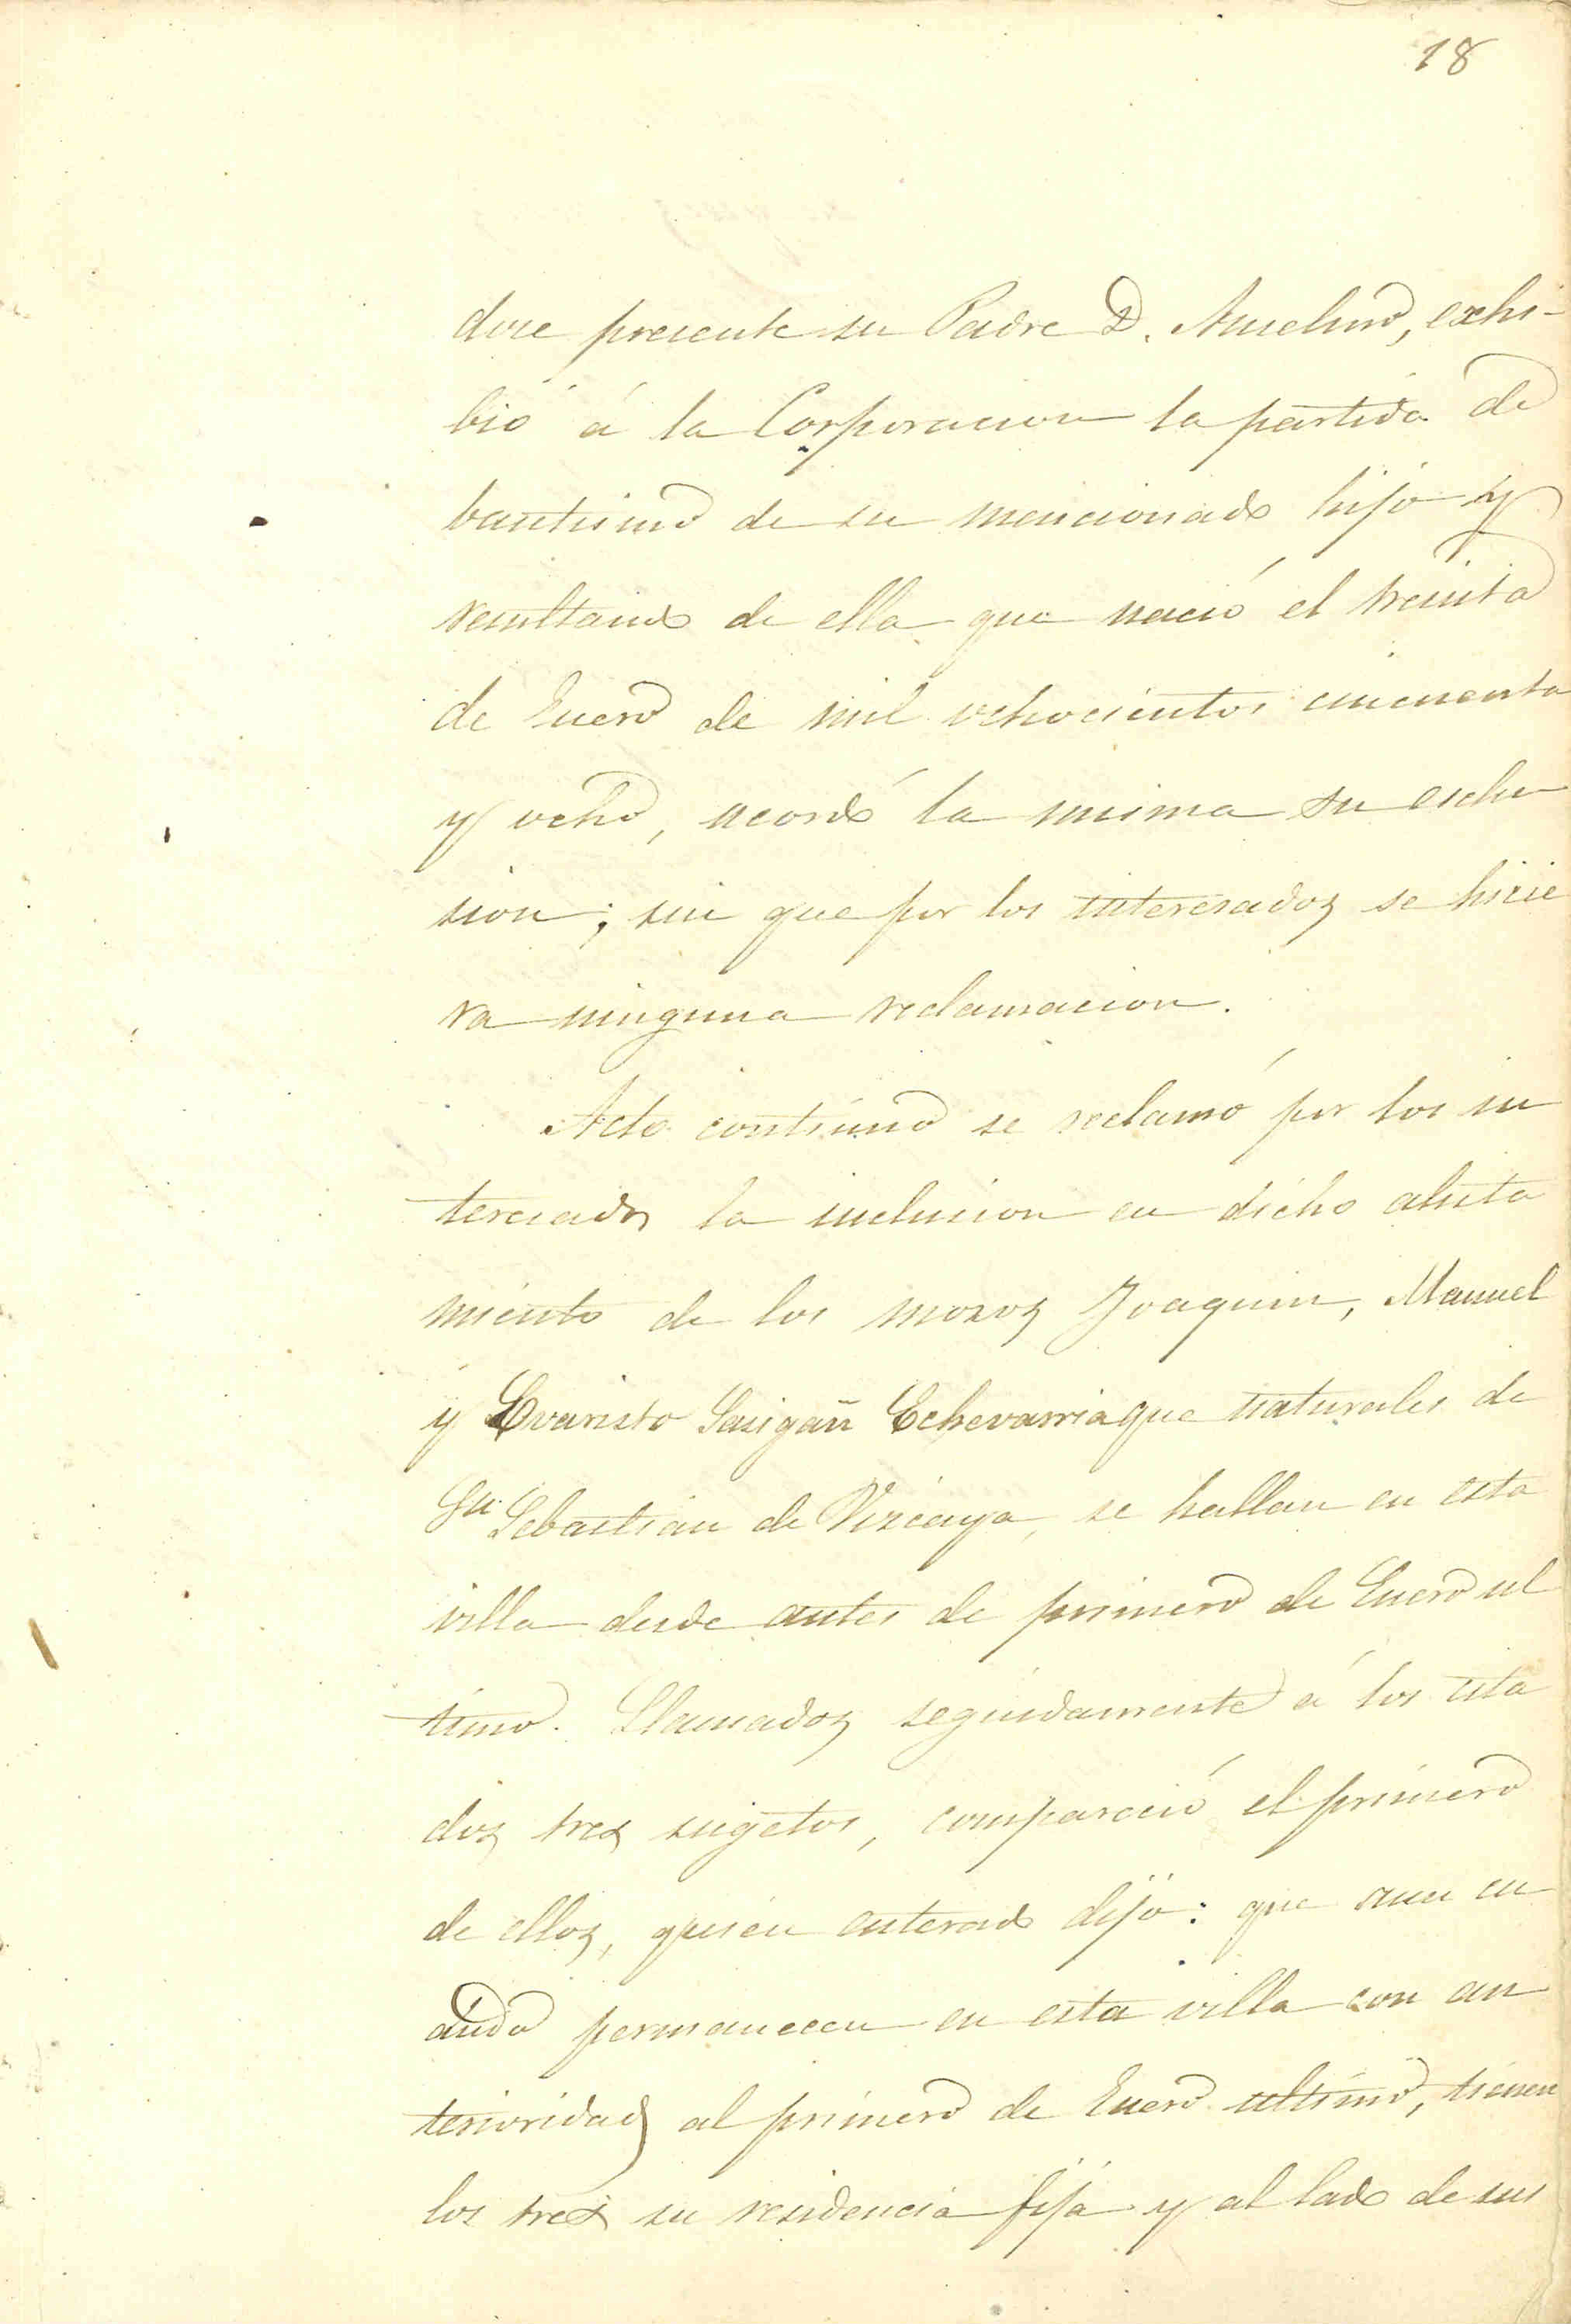 18
dose presente su Padre D. Anselmo, exhi-
bió á la Corporacion la partida de
bautismo de su mencionado hijo y
resultando de ella que nació el treinta
de Enero de mil ochocientos cincuenta
y ocho, acordó la misma su esclu
sion; sin que por los interesados se hicie
ra ninguna reclamacion.
Acto contínuo se reclamó por los in
teresados la inclusion en dicho alista
miento de los mozos Joaquin, Manuel
y Evaristo Echevarria que naturales de
Sn. Sebastian de Vizcaya, se hallan en esta
villa desde antes de primero de Enero ul
timo. Llamados seguidamente á los cita
dos tres sugetos, compareció el primero
de ellos, quién enterado dijo: que aun cu
ando permanecen en esta villa con an
terioridad al primero de Enero ultimo, tienen
los tres su residencia fija y al lado de sus